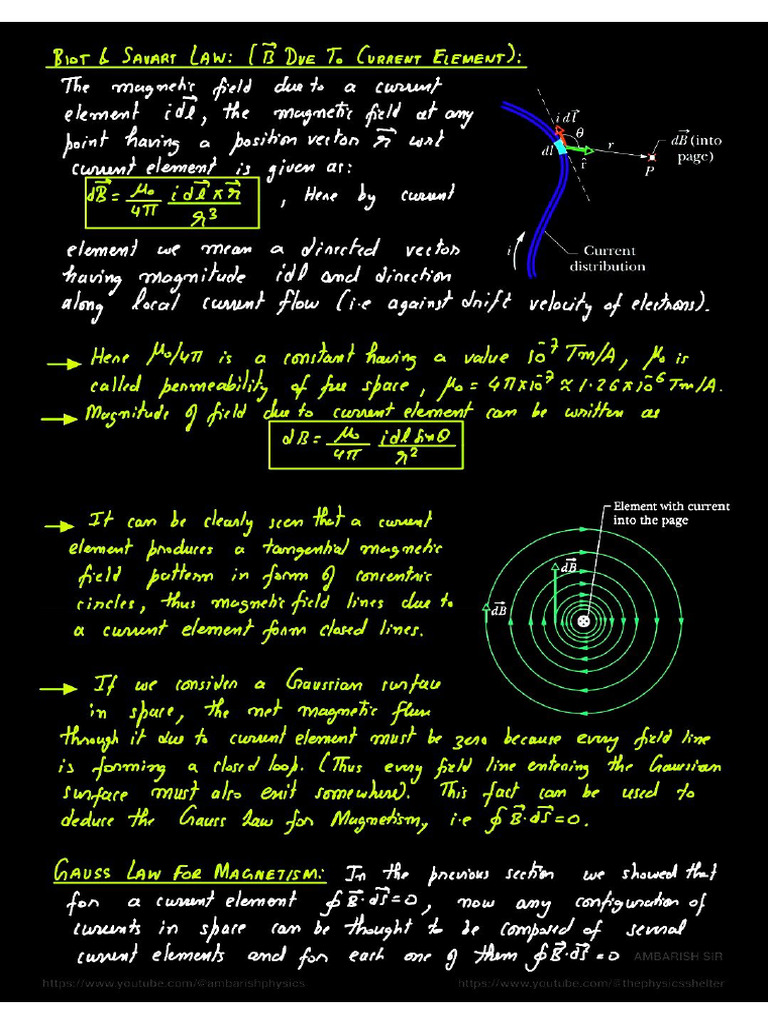 BIOT & SAVART LAW: (B⃗ DUE TO CURRENT ELEMENT):
The magnetic field due to a current
element idl⃗, the magnetic field at any
point having a position vector r⃗ wrt
current element is given as:
dB⃗ = μ₀/4π idl⃗ × r⃗/r³ , Here by current
element we mean a directed vector
having magnitude idl and direction
along local current flow (i.e against drift velocity of electrons).
i dl⃗
θ
dl
r
r̂
P
dB⃗ (into
page)
i
Current
distribution
→ Here μ₀/4π is a constant having a value 10⁻⁷ Tm/A, μ₀ is
called permeability of free space, μ₀ = 4π×10⁻⁷ ≈ 1.26×10⁻⁶ Tm/A.
→ Magnitude of field due to current element can be written as
dB = μ₀/4π idl sinθ/r²
→ It can be clearly seen that a current
element produces a tangential magnetic
field pattern in form of concentric
circles, thus magnetic field lines due to
a current element form closed lines.
Element with current
into the page
dB⃗
dB⃗
→ If we consider a Gaussian surface
in space, the net magnetic flux
through it due to current element must be zero because every field line
is forming a closed loop. (Thus every field line entering the Gaussian
surface must also exit somewhere). This fact can be used to
deduce the Gauss Law for Magnetism, i.e ∮B⃗·ds⃗=0.
GAUSS LAW FOR MAGNETISM: In the previous section we showed that
for a current element ∮B⃗·ds⃗=0, now any configuration of
currents in space can be thought to be composed of several
current elements and for each one of them ∮B⃗·ds⃗=0
AMBARISH SIR
https://www.youtube.com/@ambarishphysics
https://www.youtube.com/@thephysicsshelter